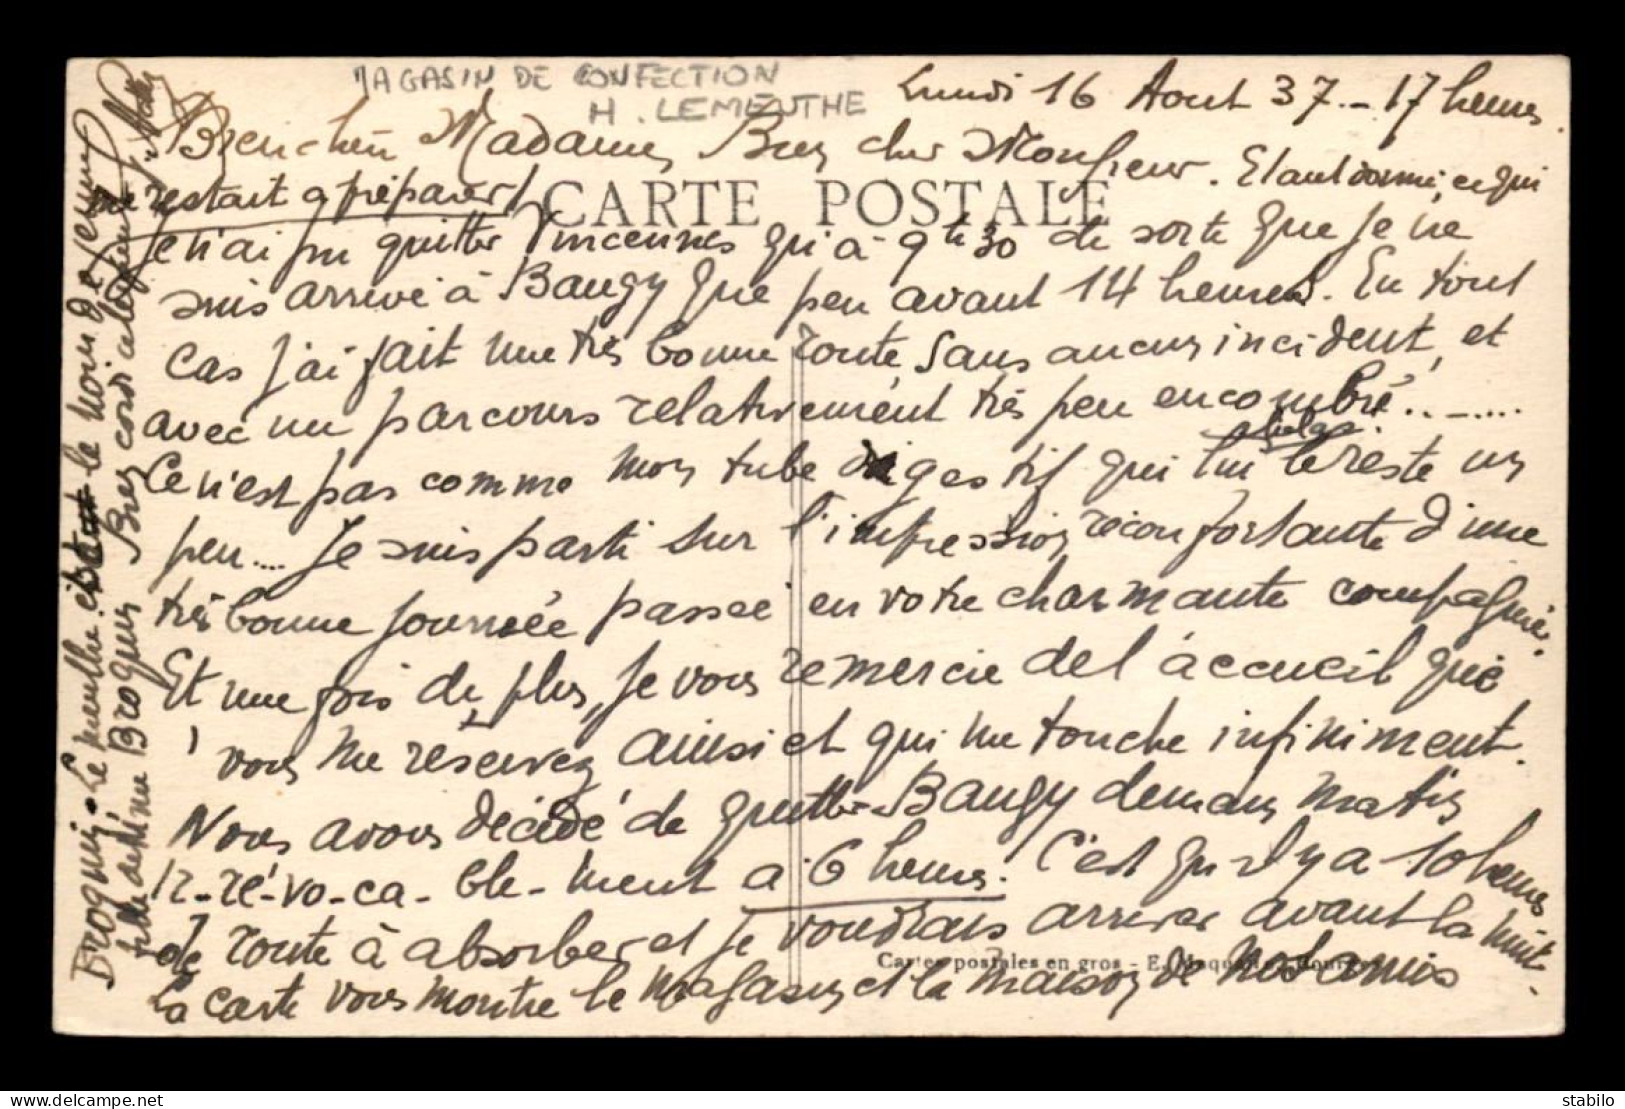 MAGASIN DE CONFECTION
H. LEMENTHE
Lundi 16 Aout 37 - 17 heures.
Bien chère Madame, Bien cher Monsieur. Etant donné, ce qui
me restait à préparer,
CARTE POSTALE
Je n'ai pu quitter Vincennes qu'à 9h30 de sorte que je ne
suis arrivé à Baugy que peu avant 14 heures. En tout
cas j'ai fait une très bonne route, sans aucun incident, et
avec un parcours relativement très peu encombré..-....
hélas!
Ce n'est pas comme mon tube digestif qui lui le reste un
peu.... Je suis parti sur l'impression réconfortante d'une
très bonne journée passée en votre charmante compagnie.
Et une fois de plus, je vous remercie de l'accueil que
vous me réservez ainsi et qui me touche infiniment.
Nous avons décidé de quitter Baugy demain matin
ir-ré-vo-ca-ble-ment à 6 heures. C'est qu'il y a 10 heures
de route à absorber et je voudrais arriver avant la nuit.
Cartes postales en gros - E. Bourges
La carte vous montre le magasin et la maison de nos amis
Le meuble le noir
Bien cordialement